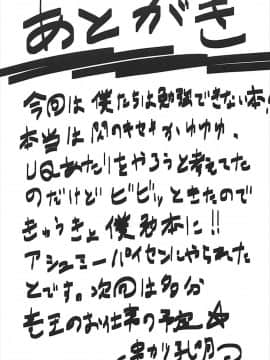 あとがき
今回は僕たちは勉強できない本。
本当は閃のキセキかゆゆゆ、
UQあたりをやろうと考えてた
のだけどビビッときたので
きゅうきょ僕勉本に!!
アシュミーパイセンにやられた
とです。次回は多分
竜王のお仕事の予定☆
串がり孔明